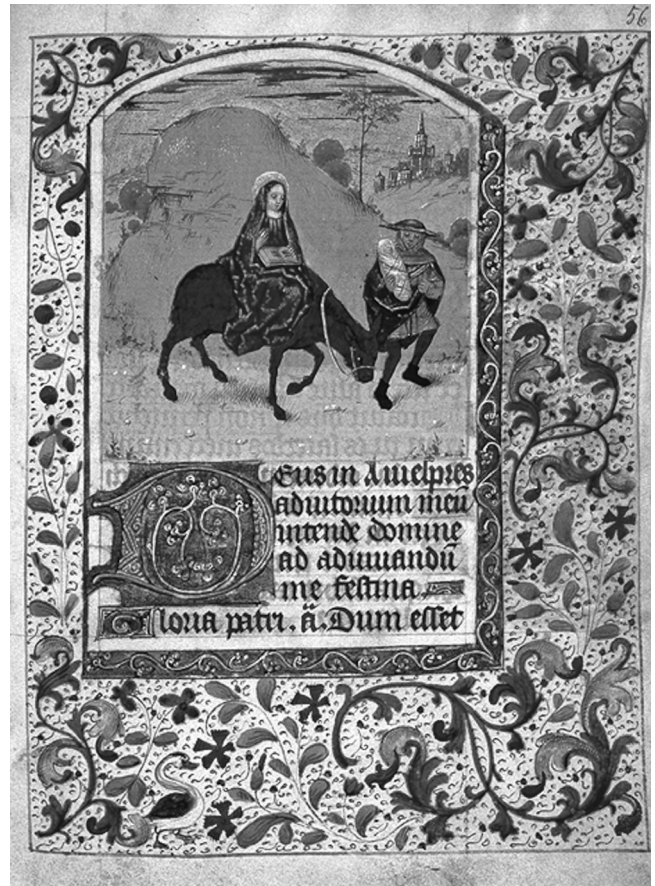 56
Deus in A uespres
adiutorium meū
intende domine
ad adiuuandū
me festina.
Gloria patri. ā. Dum esset